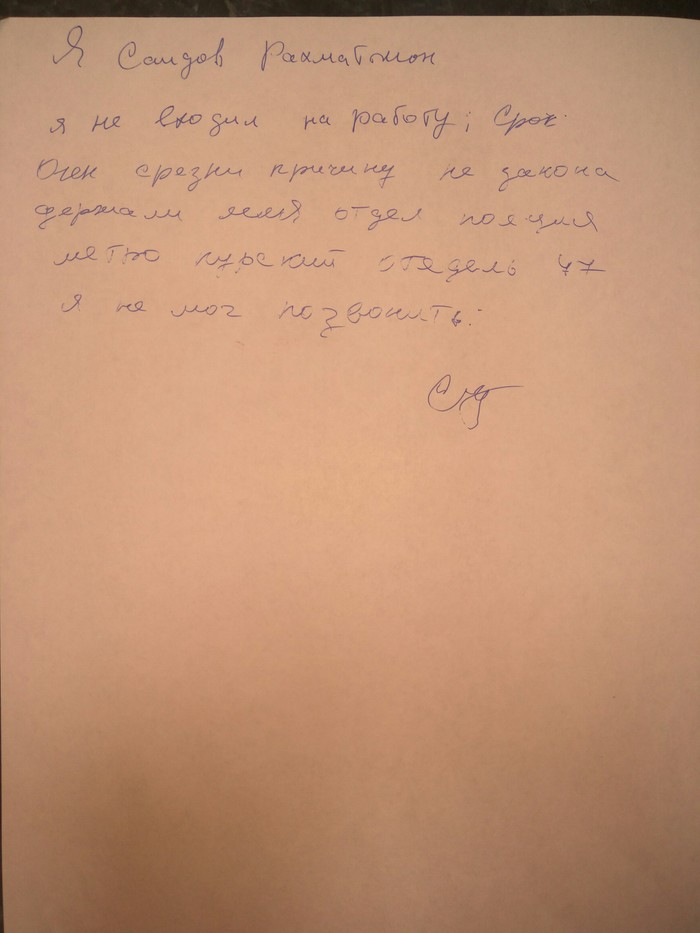 Я Саидов Рахматжон
я не входил на работу; Срок
Очен срезни причину не закона
держали меня отдел полиция
метро курский отедель 47
я не мог позвонить.